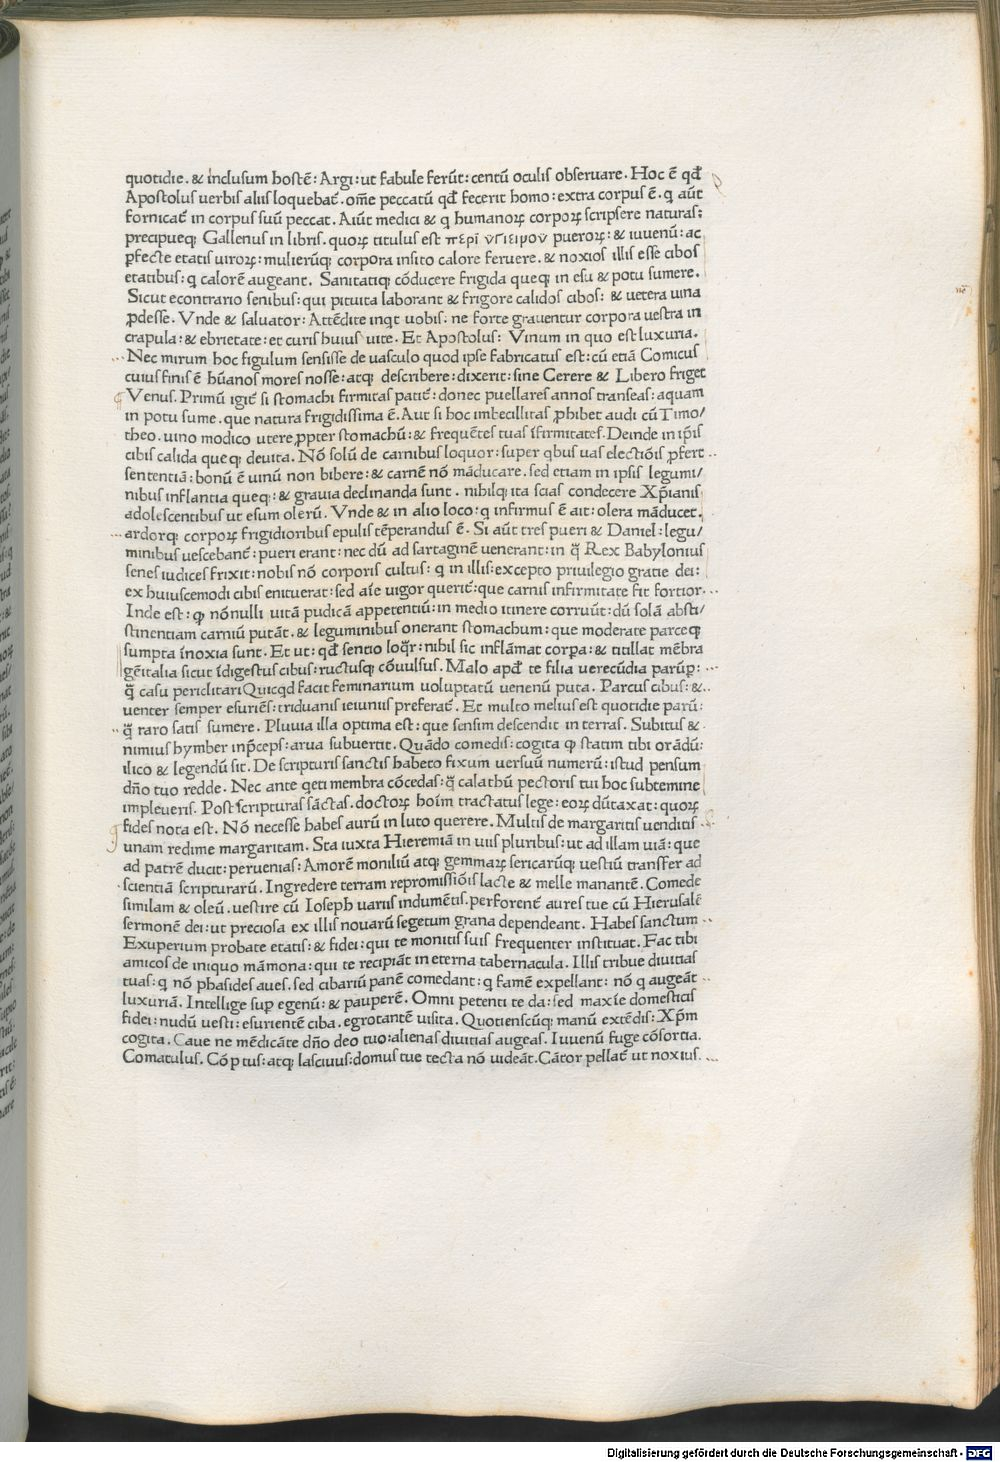 quotidie. & inclusum hostē: Argi: ut fabule ferūt: centū oculis obseruare. Hoc ē qđ
Apostolus uerbis aliis loquebat̄. om̄e peccatū qđ fecerit homo: extra corpus ē. q aūt
fornicat̄ in corpus suū peccat. Aiūt medici & q humanoꝝ corpoꝝ scripsere naturas:
precipueq; Gallenus in libris. quoꝝ titulus est περὶ ὑγιεινου pueroꝝ: & iuuenū: ac
ꝑfecte etatis uiroꝝ: mulierūq; corpora insito calore feruere. & noxios illis esse cibos
etatibus: q calorē augeant. Sanitatiq; cōducere frigida queq; in esu & potu sumere.
Sicut econtrario senibus: qui pituita laborant & frigore calidos cibos: & uetera uina
ꝓdesse. Vnde & saluator: Attēdite inqt uobis: ne forte grauentur corpora uestra in
crapula: & ebrietate: et curis huius uite. Et Apostolus: Vinum in quo est luxuria.
Nec mirum hoc figulum sensisse de uasculo quod ipse fabricatus est: cū etiā Comicus
cuius finis ē hūanos mores nosse: atq; describere: dixerit: sine Cerere & Libero friget
Venus. Primū igit̄ si stomachi firmitas patit̄: donec puellares annos transeas: aquam
in potu sume. que natura frigidissima ē. Aut si hoc imbecillitas ꝓhibet audi cū Timo/
theo. uino modico utere ꝓpter stomachū: & frequētes tuas īfirmitates. Deinde in ip̄is
cibis calida queq; deuita. Nō solū de carnibus loquor: super qbus uas electiōis ꝓfert
sententiā: bonū ē uinū non bibere: & carnē nō māducare. sed etiam in ipsis legumi/
nibus inflantia queq;: & grauia declinanda sunt. nihilq; ita scias condecere Xp̄ianis
adolescentibus ut esum olerū. Vnde & in alio loco: q infirmus ē ait: olera māducet.
ardorq; corpoꝝ frigidioribus epulis tēperandus ē. Si aūt tres pueri & Daniel: legu/
minibus uescebant̄: pueri erant: nec dū ad sartaginē uenerant: in q̄ Rex Babylonius
senes iudices frixit: nobis nō corporis cultus: q in illis: excepto priuilegio gratie dei:
ex huiuscemodi cibis enituerat: sed aīe uigor querit̄: que carnis infirmitate fit fortior.
Inde est: ꝙ nōnulli uitā pudicā appetentiū: in medio itinere corruūt: dū solā absti/
stinentiam carniū putāt. & leguminibus onerant stomachum: que moderate parceq;
sumpta īnoxia sunt. Et ut: qđ sentio loq̄r: nihil sic inflāmat corꝑa: & titillat mēbra
gēitalia sicut īdigestus cibus: ructusq; cōuulsus. Malo apđ te filia uerecūdia parūꝑ:
q̄ casu periclitari Quicqd facit seminarium uoluptatū uenenū puta. Parcus cibus: &
uenter semper esuriēs: triduanis ieiuniis preferat̄. Et multo melius est quotidie parū:
q̄ raro satis sumere. Pluuia illa optima est: que sensim descendit in terras. Subitus &
nimius hymber inp̄ceps: arua subuertit. Quādo comedis: cogita ꝙ statim tibi orādū:
ilico & legendū sit. De scripturis sanctis habeto fixum uersuū numerū: istud pensum
dn̄o tuo redde. Nec ante qeti membra cōcedas: q̄ calathū pectoris tui hoc subtemine
impleueris. Post scripturas sāctas. doctoꝝ hoīm tractatus lege: eoꝝ dūtaxat: quoꝝ
fides nota est. Nō necesse habes aurū in luto querere. Multis de margaritis uenditis
unam redime margaritam. Sta iuxta Hieremiā in uiis pluribus: ut ad illam uiā: que
ad patrē ducit: peruenias: Amorē moniliū atq; gemmaꝝ sericarūq; uestiū transfer ad
scientiā scripturarū. Ingredere terram repromissiōis lacte & melle manantē. Comede
similam & oleū. uestire cū Ioseph uariis indumētis. perforent̄ aures tue cū Hierusalē
sermonē dei: ut preciosa ex illis nouarū segetum grana dependeant. Habes sanctum
Exuperium probate etatis: & fidei: qui te monitis suis frequenter instituat. Fac tibi
amicos de iniquo māmona: qui te recipiāt in eterna tabernacula. Illis tribue diuitias
tuas: q nō phasides aues. sed cibariū panē comedant: q famē expellant: nō q augeāt
luxuriā. Intellige suꝑ egenū: & pauperē. Omni petenti te da: sed maxīe domesticis
fidei: nudū uesti: esurientē ciba. egrotantē uisita. Quotienscūq; manū extēdis: Xp̄m
cogita. Caue ne mēdicāte dn̄o deo tuo: alienas diuitias augeas. Iuuenū fuge cōsortia.
Comatulus. Cōptus: atq; lasciuus: domus tue tecta nō uideāt. Cātor pellat̄ ut noxius.
Digitalisierung gefördert durch die Deutsche Forschungsgemeinschaft - DFG